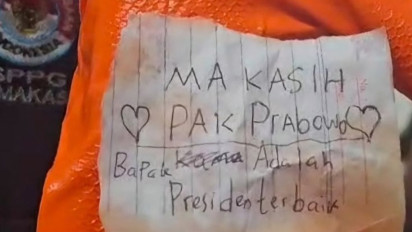 INDONESIA
SPPG
MAKAS
MAKASIH
PAK Prabowo
Bapak Adalah
Presiden terbaik